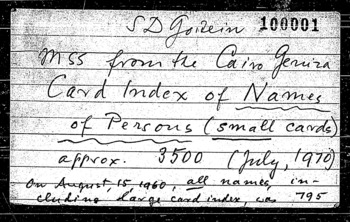 S D Goitein 100001
Mss from the Cairo Geniza
Card Index of Names
of Persons (small cards)
approx. 3500 (July, 1970)
On August, 15, 1960, all names, in-
cluding large card index, was 795